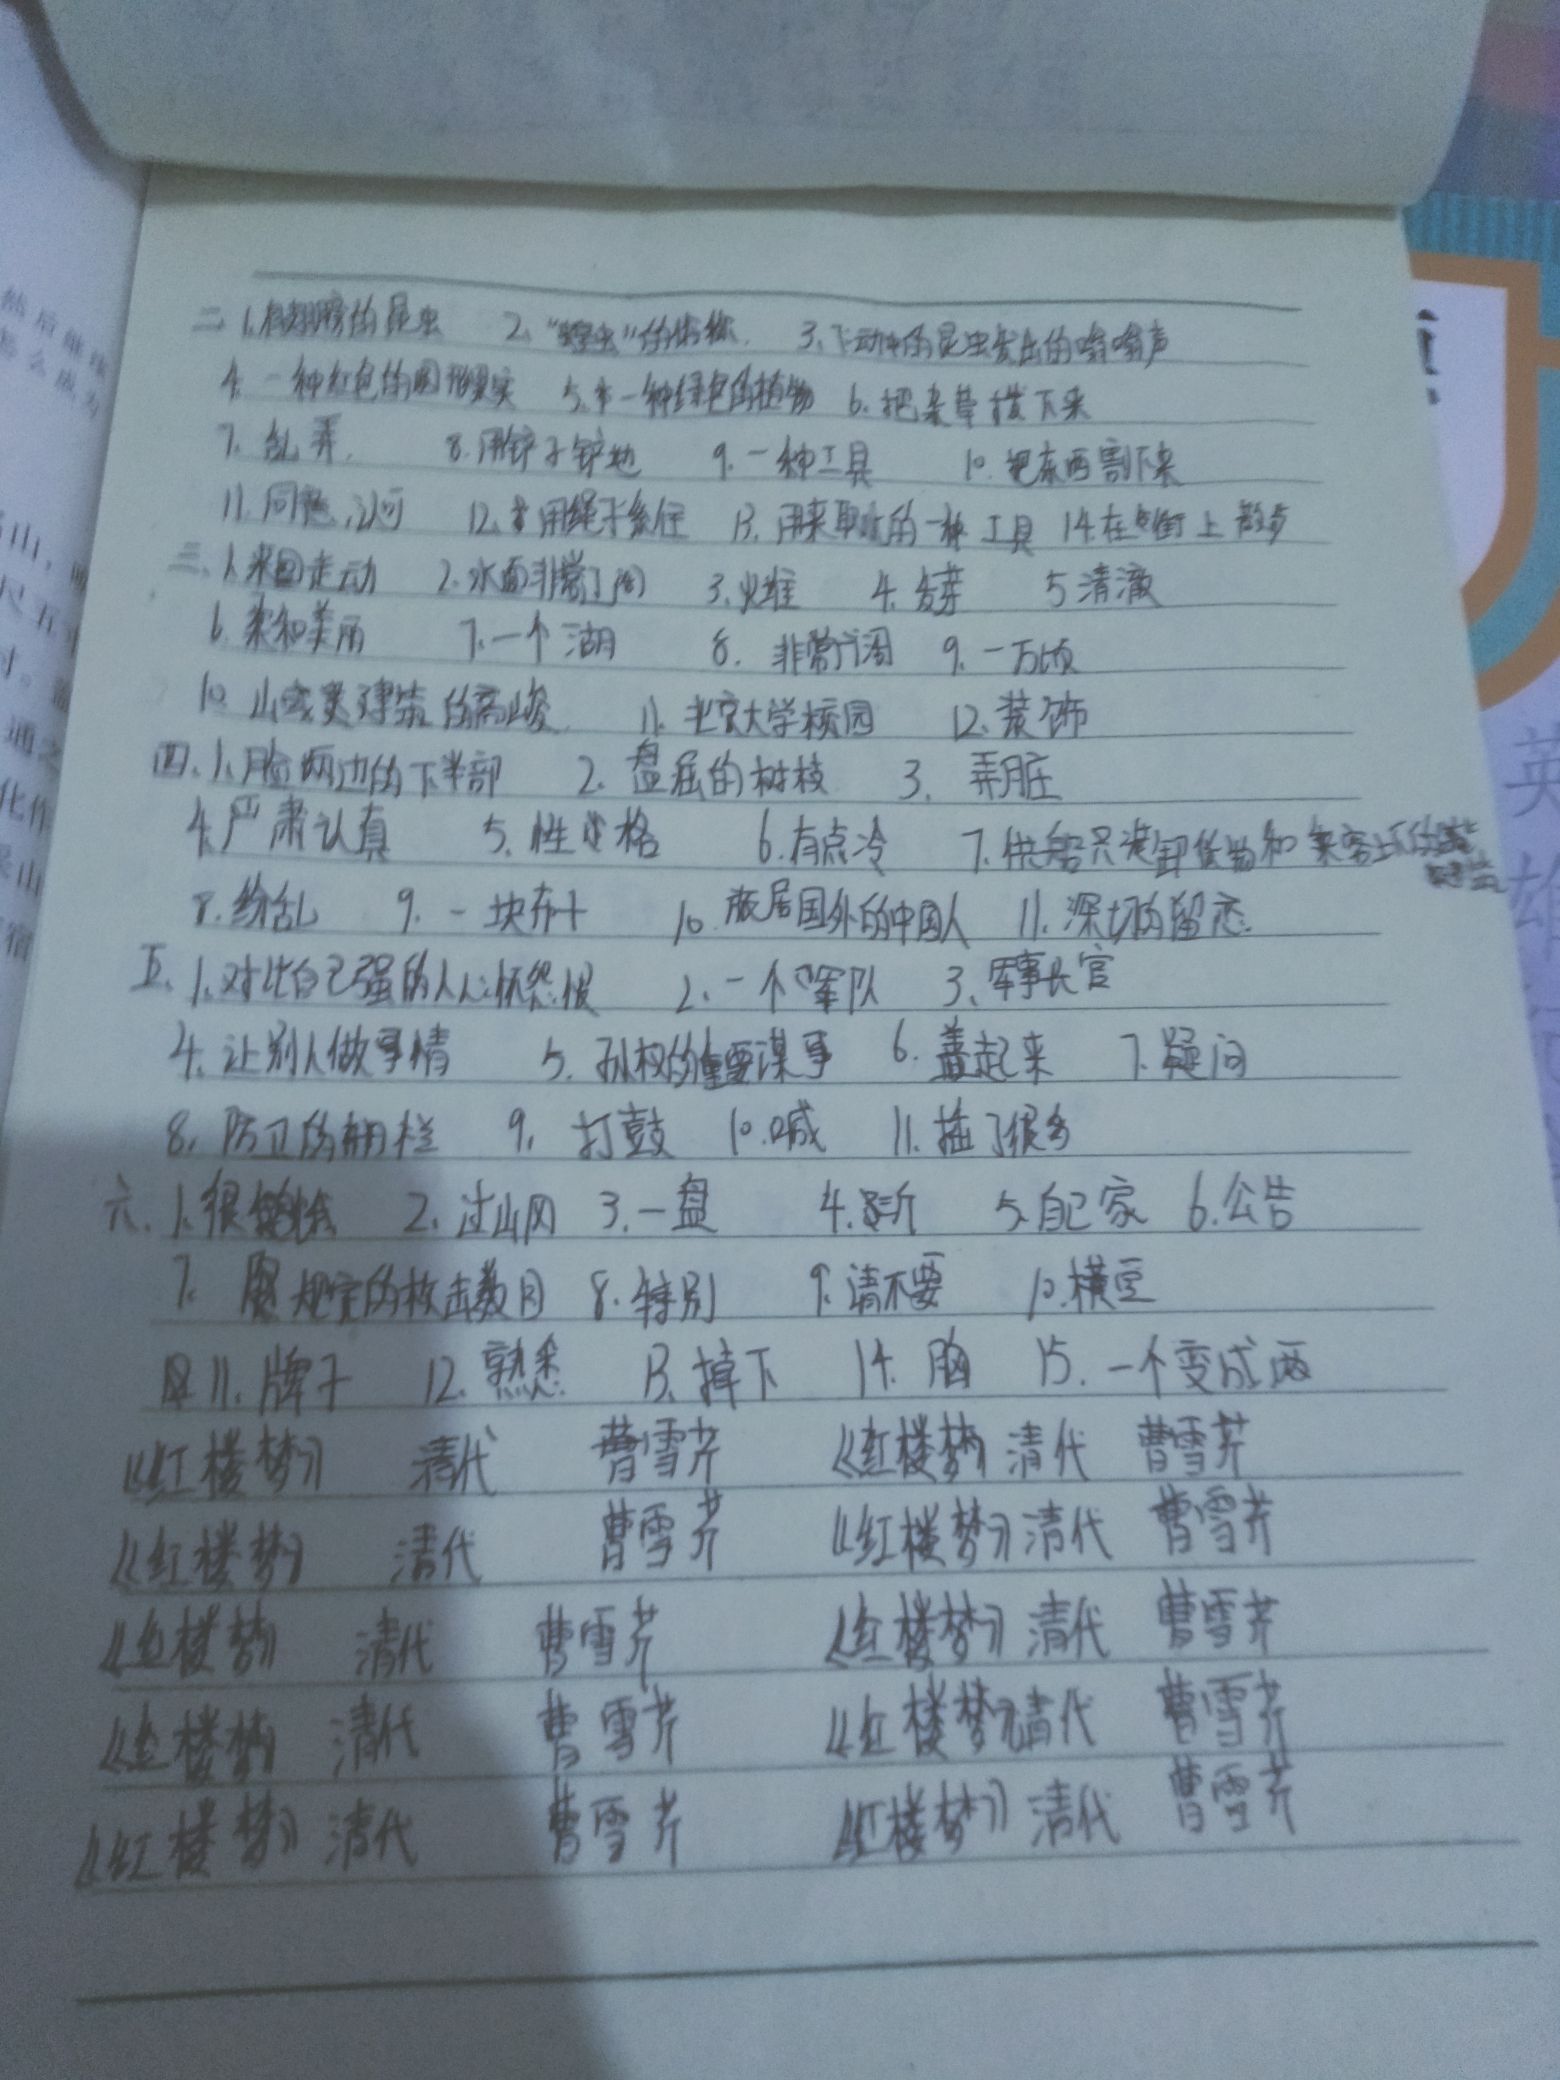 二、1.有翅膀的昆虫 2、“螳虫”的俗称. 3、飞动中的昆虫发出的嗡嗡声
4.一种红色的圆形果实 5.一种绿色的植物 6.把杂草拔下来
7.乱弄. 8.用铲子铲地 9.一种工具 10.把东西割下来
11.同意,认可 12.用绳子系住 13.用来取水的一种工具 14.在街上散步
三、1.来回走动 2.水面非常广阔 3、火堆 4.发芽 5清澈
6.柔和美丽 7.一个湖 8.非常广阔 9.一万顷
10.山或类建筑的高峻 11.北京大学校园 12.装饰
四、1.脸两边的下半部 2.盘屈的树枝 3.弄脏
4.严肃认真 5.性格 6.有点冷 7.供船只装卸货物和乘客上下的建筑
8.纷乱 9.一块布 10.旅居国外的中国人 11.深切的留恋
五、1.对比自己强的人心怀怨恨 2.一个军队 3、军事长官
4.让别人做事情 5.孙权的重要谋事 6.盖起来 7.疑问
8.防卫的栅栏 9.打鼓 10.喊 11.插了很多
六、1.很 2.过山风 3.一盘 4.斯 5.自己家 6.公告
7.规定的杖击数目 8.特别 9.请不要 10.横亘
11.牌子 12.熟悉 13.掉下 14.胸 15.一个变成两
《红楼梦》 清代 曹雪芹 《红楼梦》 清代 曹雪芹
《红楼梦》 清代 曹雪芹 《红楼梦》清代 曹雪芹
《红楼梦》 清代 曹雪芹 《红楼梦》清代 曹雪芹
《红楼梦》 清代 曹雪芹 《红楼梦》清代 曹雪芹
《红楼梦》 清代 曹雪芹 《红楼梦》清代 曹雪芹
英
雄